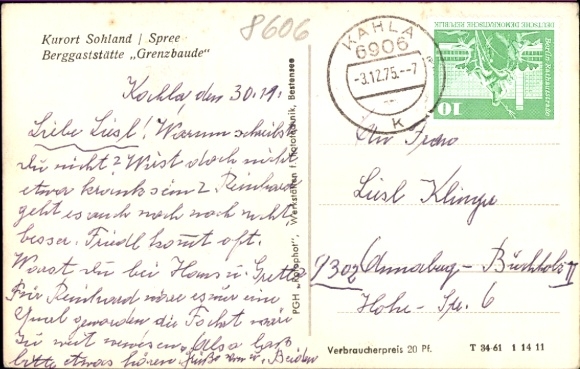 8606
Kurort Sohland / Spree
Berggaststätte „Grenzbaude"
Kahla den 30.11.
Liebe Liesl! Warum schreibst
Du nicht? Wirst doch nicht
etwa krank sein? Reinhard
geht es auch noch nicht
besser. Friedl kommt oft.
Warst Du bei Hans u. Grette
Für Reinhard wäre es nur eine
Qual geworden die Fahrt wäre
zu weit gewesen. Also laß
bitte etwas hören Grüße von u. Beiden
PGH „Fotophot", Werkstätten f. Fototechnik, Bestensee
KAHLA
6906
-3.12.75.--7
k
DEUTSCHE DEMOKRATISCHE REPUBLIK
Berlin, Rathausstraße
10
An Frau
Liesl Klinge
9302 Annaberg-Buchholz II
Hohe-Str. 6
Verbraucherpreis 20 Pf.
T 34-61 1 14 11